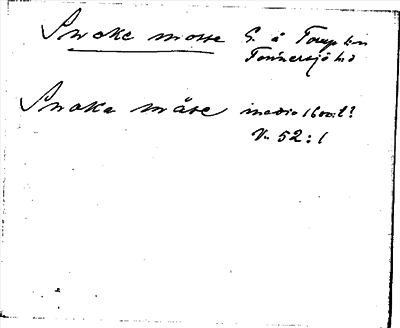 Snoke mosse S. å Torup sn
Tönnersjö hd
Snoka måse medio 1600-t?
V. 52:1